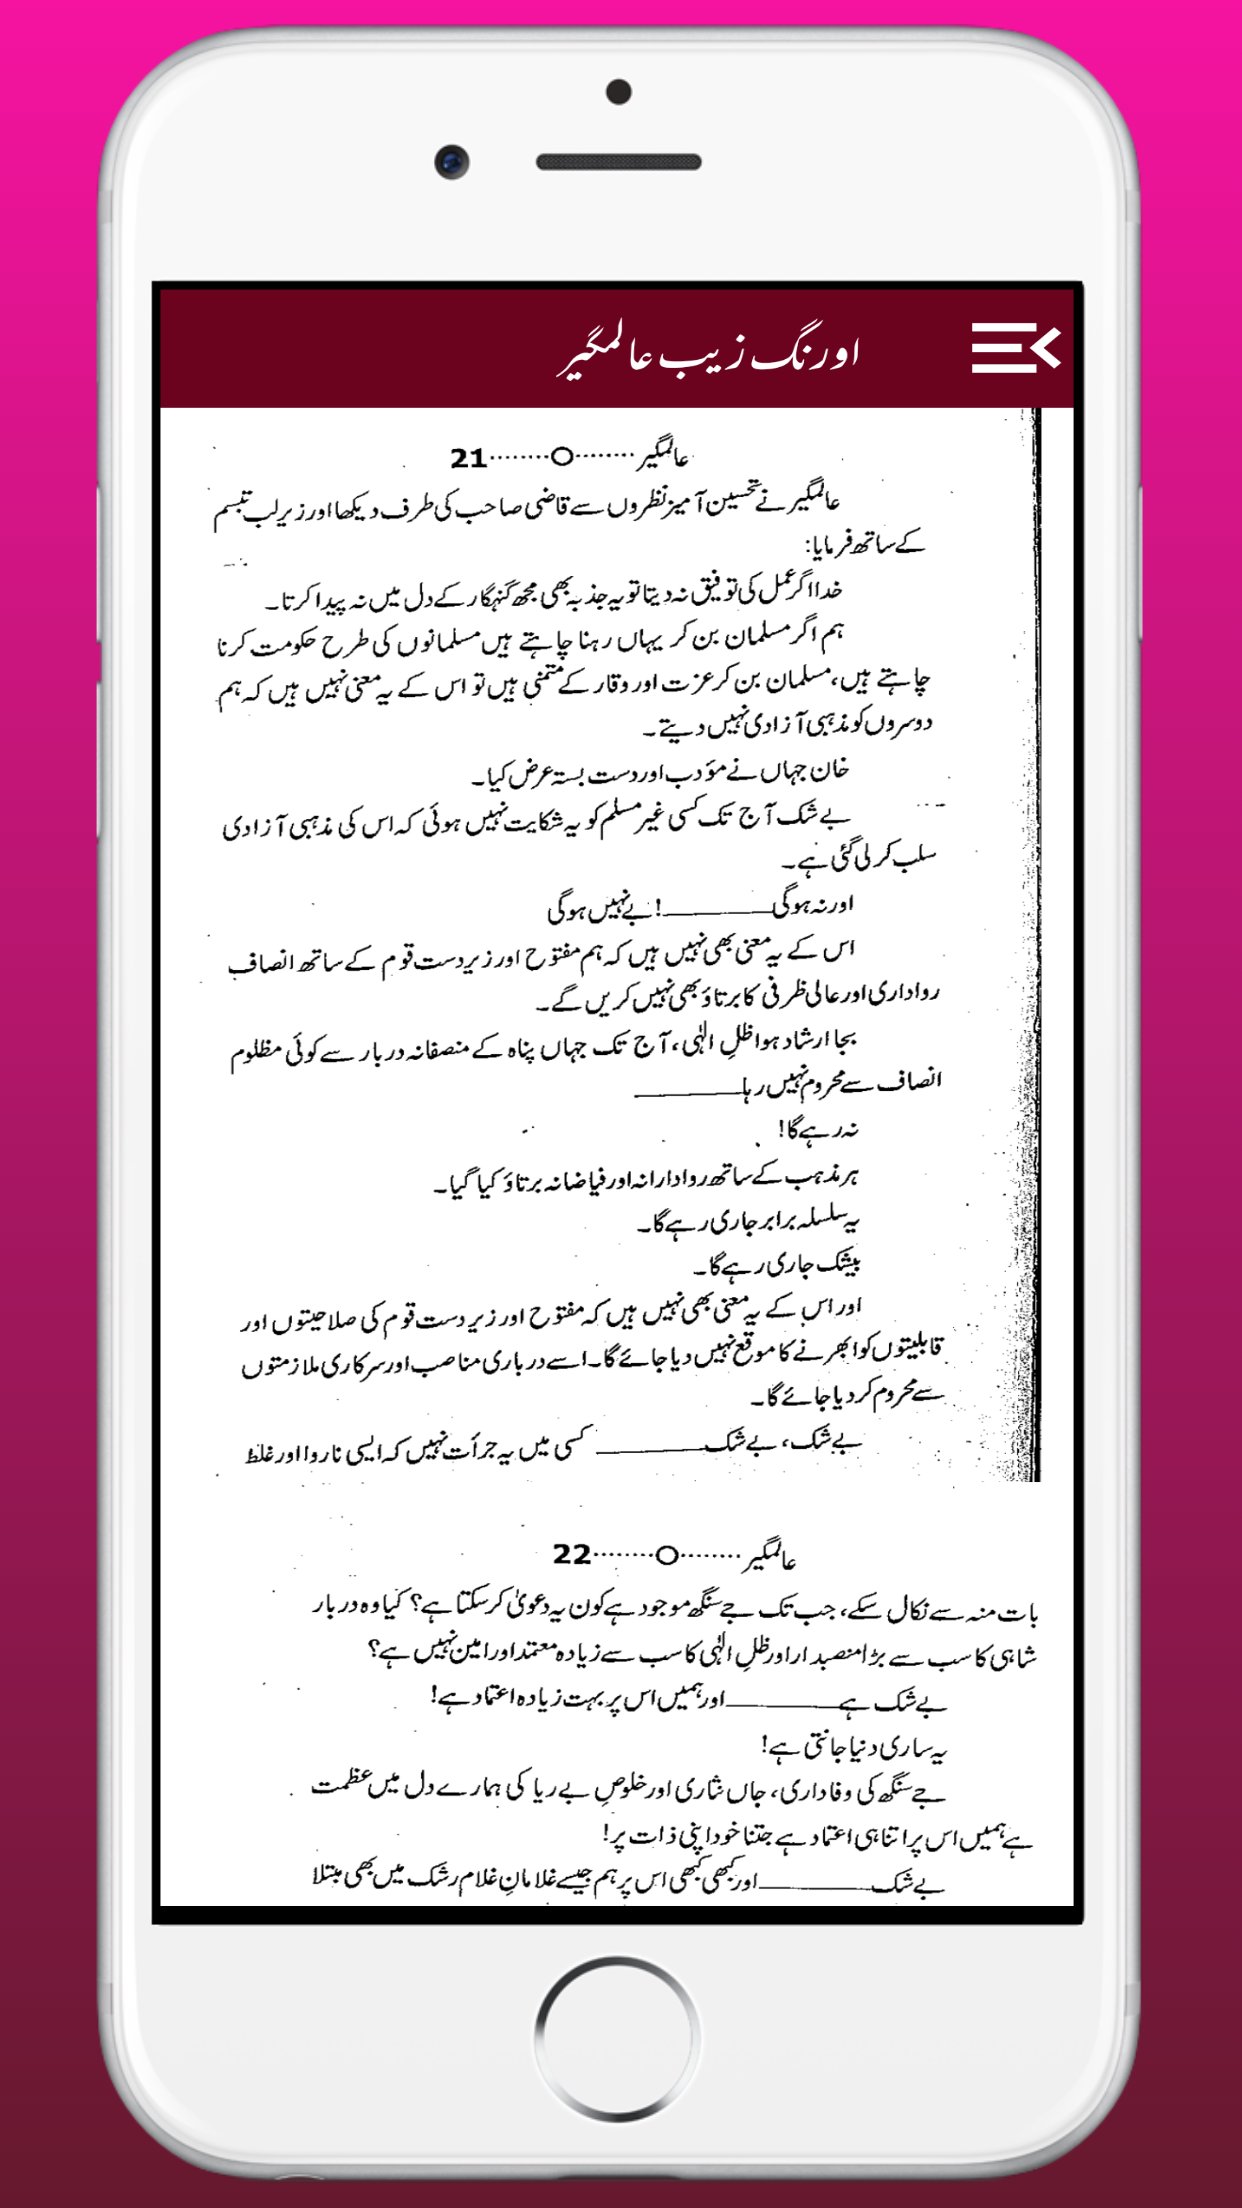 اورنگ زیب عالمگیر
عالمگیر ········○········ 21
عالمگیر نے تحسین آمیز نظروں سے قاضی صاحب کی طرف دیکھا اور زیر لب تبسم
کے ساتھ فرمایا:
خدا اگر عمل کی توفیق نہ دیتا تو یہ جذبہ بھی مجھ گنہگار کے دل میں نہ پیدا کرتا۔
ہم اگر مسلمان بن کر یہاں رہنا چاہتے ہیں مسلمانوں کی طرح حکومت کرنا
چاہتے ہیں، مسلمان بن کر عزت اور وقار کے متمنی ہیں تو اس کے یہ معنی نہیں ہیں کہ ہم
دوسروں کو مذہبی آزادی نہیں دیتے۔
خان جہاں نے مؤدب اور دست بستہ عرض کیا۔
بے شک آج تک کسی غیر مسلم کو یہ شکایت نہیں ہوئی کہ اس کی مذہبی آزادی
سلب کر لی گئی ہے۔
اور نہ ہوگی ــــــــــــ! بے نہیں ہوگی
اس کے یہ معنی بھی نہیں ہیں کہ ہم مفتوح اور زیردست قوم کے ساتھ انصاف
رواداری اور عالی ظرفی کا برتاؤ بھی نہیں کریں گے۔
بجا ارشاد ہوا ظلِ الٰہی، آج تک جہاں پناہ کے منصفانہ دربار سے کوئی مظلوم
انصاف سے محروم نہیں رہا ــــــــــــ
نہ رہے گا!
ہر مذہب کے ساتھ روادارانہ اور فیاضانہ برتاؤ کیا گیا۔
یہ سلسلہ برابر جاری رہے گا۔
بیشک جاری رہے گا۔
اور اس کے یہ معنی بھی نہیں ہیں کہ مفتوح اور زیردست قوم کی صلاحیتوں اور
قابلیتوں کو ابھرنے کا موقع نہیں دیا جائے گا۔ اسے درباری مناصب اور سرکاری ملازمتوں
سے محروم کر دیا جائے گا۔
بے شک، بے شک ــــــــــــ کسی میں یہ جرأت نہیں کہ ایسی ناروا اور غلط
عالمگیر ········○········ 22
بات منہ سے نکال سکے، جب تک جے سنگھ موجود ہے کون یہ دعویٰ کر سکتا ہے؟ کیا وہ دربار
شاہی کا سب سے بڑا منصبدار اور ظلِ الٰہی کا سب سے زیادہ معتمد اور امین نہیں ہے؟
بے شک ہے ــــــــــــ اور ہمیں اس پر بہت زیادہ اعتماد ہے!
یہ ساری دنیا جانتی ہے!
جے سنگھ کی وفاداری، جاں نثاری اور خلوصِ بے ریا کی ہمارے دل میں عظمت
ہے ہمیں اس پر اتنا ہی اعتماد ہے جتنا خود اپنی ذات پر!
بے شک ــــــــــــ اور کبھی کبھی اس پر ہم جیسے غلامانِ غلام رشک میں بھی مبتلا